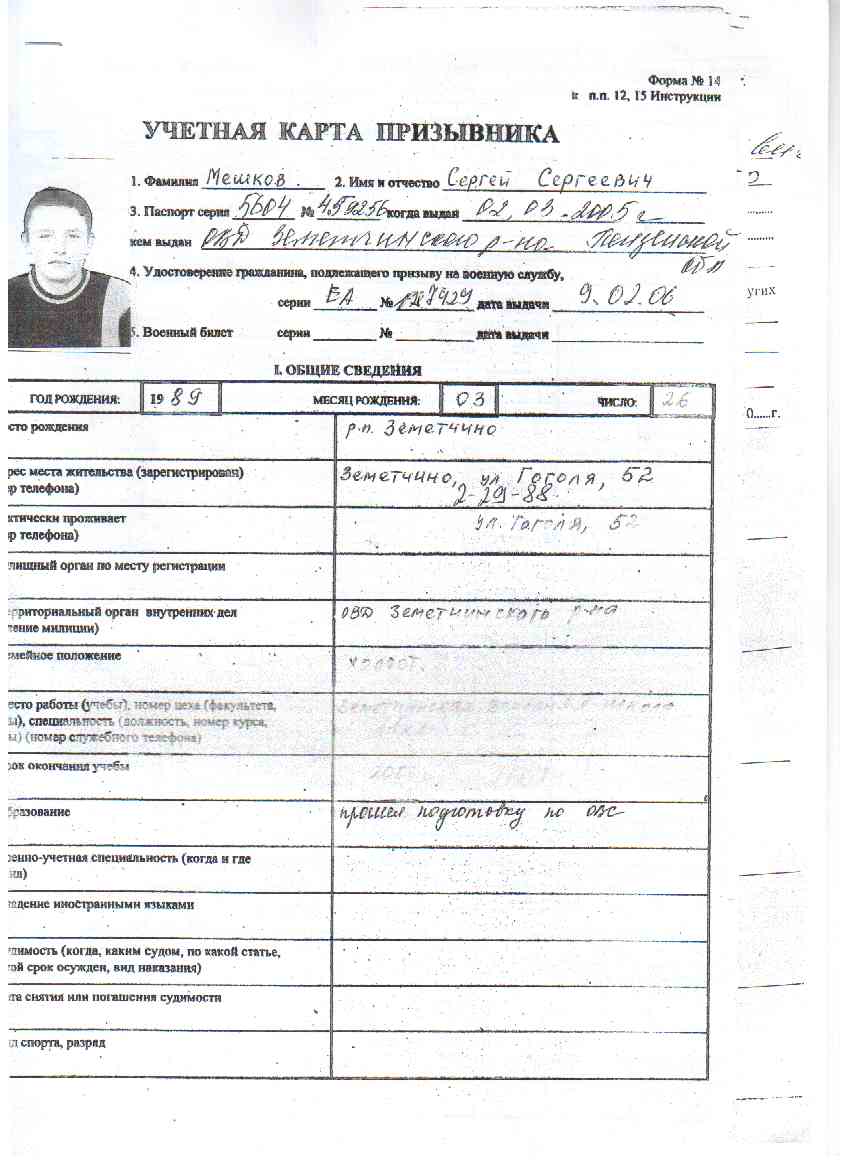 Форма № 14
к п.п. 12, 15 Инструкции
УЧЕТНАЯ КАРТА ПРИЗЫВНИКА
1. Фамилия Мешков. 2. Имя и отчество Сергей Сергеевич
3. Паспорт серия 5604 № 459256 когда выдан 02.03.2005 г
кем выдан ОВД Земетчинского р-на Пензенской
обл
4. Удостоверение гражданина, подлежащего призыву на военную службу,
серии ЕА № дата выдачи 9.02.06
угих
5. Военный билет серии № дата выдачи
I. ОБЩИЕ СВЕДЕНИЯ
ГОД РОЖДЕНИЯ: 1989 МЕСЯЦ РОЖДЕНИЯ: 03 ЧИСЛО: 26
0......г.
сто рождения р.п. Земетчино
рес места жительства (зарегистрирован) Земетчино, ул Гоголя, 52
р телефона) 2-29-88
ктически проживает ул. Гоголя, 52
р телефона)
лищный орган по месту регистрации
рриториальный орган внутренних дел ОВД Земетчинского р-на
ение милиции)
мейное положение холост.
есто работы (учебы), номер цеха (факультета,
ы), специальность (должность, номер курса,
ы) (номер служебного телефона)
ок окончания учебы
бразование прошел подготовку по ОВС
енно-учетная специальность (когда и где
ил)
адение иностранными языками
димость (когда, каким судом, по какой статье,
ой срок осужден, вид наказания)
та снятия или погашения судимости
д спорта, разряд